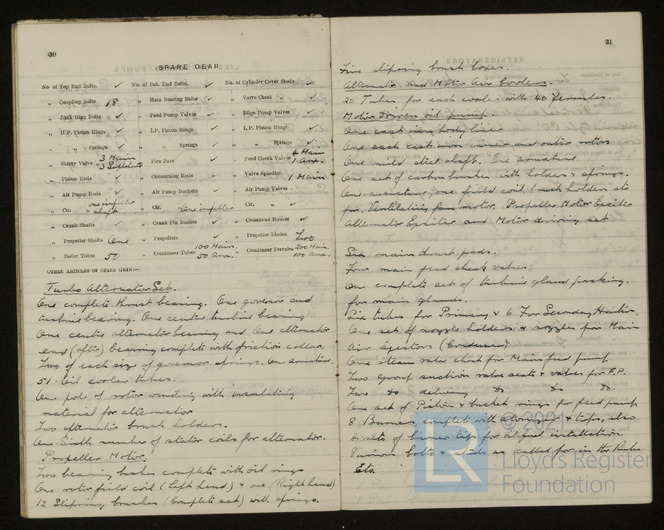 30
SPARE GEAR.
No. of Top End Bolts. ✓ No. of Bot. End Bolts. ✓ No. of Cylinder Cover Studs ✓
„ Coupling Bolts 18 „ Main Bearing Bolts ✓ „ Valve Chest „ ✓
„ Junk Ring Bolts ✓ „ Feed Pump Valves ✓ „ Bilge Pump Valves ✓
„ H.P. Piston Rings ✓ „ I.P. Piston Rings ✓ „ L.P. Piston Rings ✓
„ „ Springs ✓ „ „ Springs ✓ „ „ Springs ✓
„ Safety Valve „ 3 Main „ Fire Bars ✓ „ Feed Check Valves 4 Main 1 Aux.
„ Piston Rods ✓ „ Connecting Rods ✓ „ Valve Spindles 1 Main
„ Air Pump Rods ✓ „ Air Pump Buckets ✓ „ Air Pump Valves ✓
„ Cir. „ one impeller shaft „ Cir. „ One impeller „ Cir. „ ✓
„ Crank Shafts ✓ „ Crank Pin Bushes ✓ „ Crosshead Bushes ✓
„ Propeller Shafts One „ Propellers ✓ „ Propeller Blades Two
„ Boiler Tubes 50 „ Condenser Tubes 100 Main. 50 Aux. „ Condenser Ferrules 200 Main 100 Aux.
OTHER ARTICLES OF SPARE GEAR:—
Turbo Alternator Set.
One complete thrust bearing. One governor end
turbine bearing. One centre turbine bearing
One centre alternator bearing and One alternator
end (after) bearing complete with friction collar.
Two of each size of governor springs. One armature.
51. Oil cooler tubes.
One pole of rotor winding with insulating
material for alternator
Two alternator brush holders.
One sixth number of stator coils for alternator.
Propeller Motor.
Two bearing bushes complete with oil rings
One rotor field coil (Left hand) & one (Right hand)
12 Slipring brushes (Complete set) with springs.
31
Five slipring brush boxes.
Alternator and Motor Air Coolers.
20 Tubes for each cooler with 40 ferrules.
Motor Driven oil pump.
One cast iron body liner
One each cast iron inner and outer rotors
One mild steel shaft. One armature
One set of carbon brushes with holders & springs.
One armature, one field coil, brush holders etc
for Ventilating fan motor, Propeller Motor Exciter
Alternator Exciter and Motor driving set
Six main thrust pads.
Four main feed check valves.
One complete set of turbine gland packing.
for main glands.
Six tubes for Primary & 6 For Secondary Heater.
One set of nozzle holders & nozzles for Main
Air Ejectors (Condenser)
One steam valve chest for Main feed pump
Two Group suction valve seats & valves for F.P.
Two do delivery do do do
One set of Piston & bucket rings for feed pump
8 Burners complete with & tips, also
6 sets of burner tips for oil fuel installation.
Various bolts & studs as called for in the Rules
Etc.
© 2021
LR
Lloyd's Register
Foundation